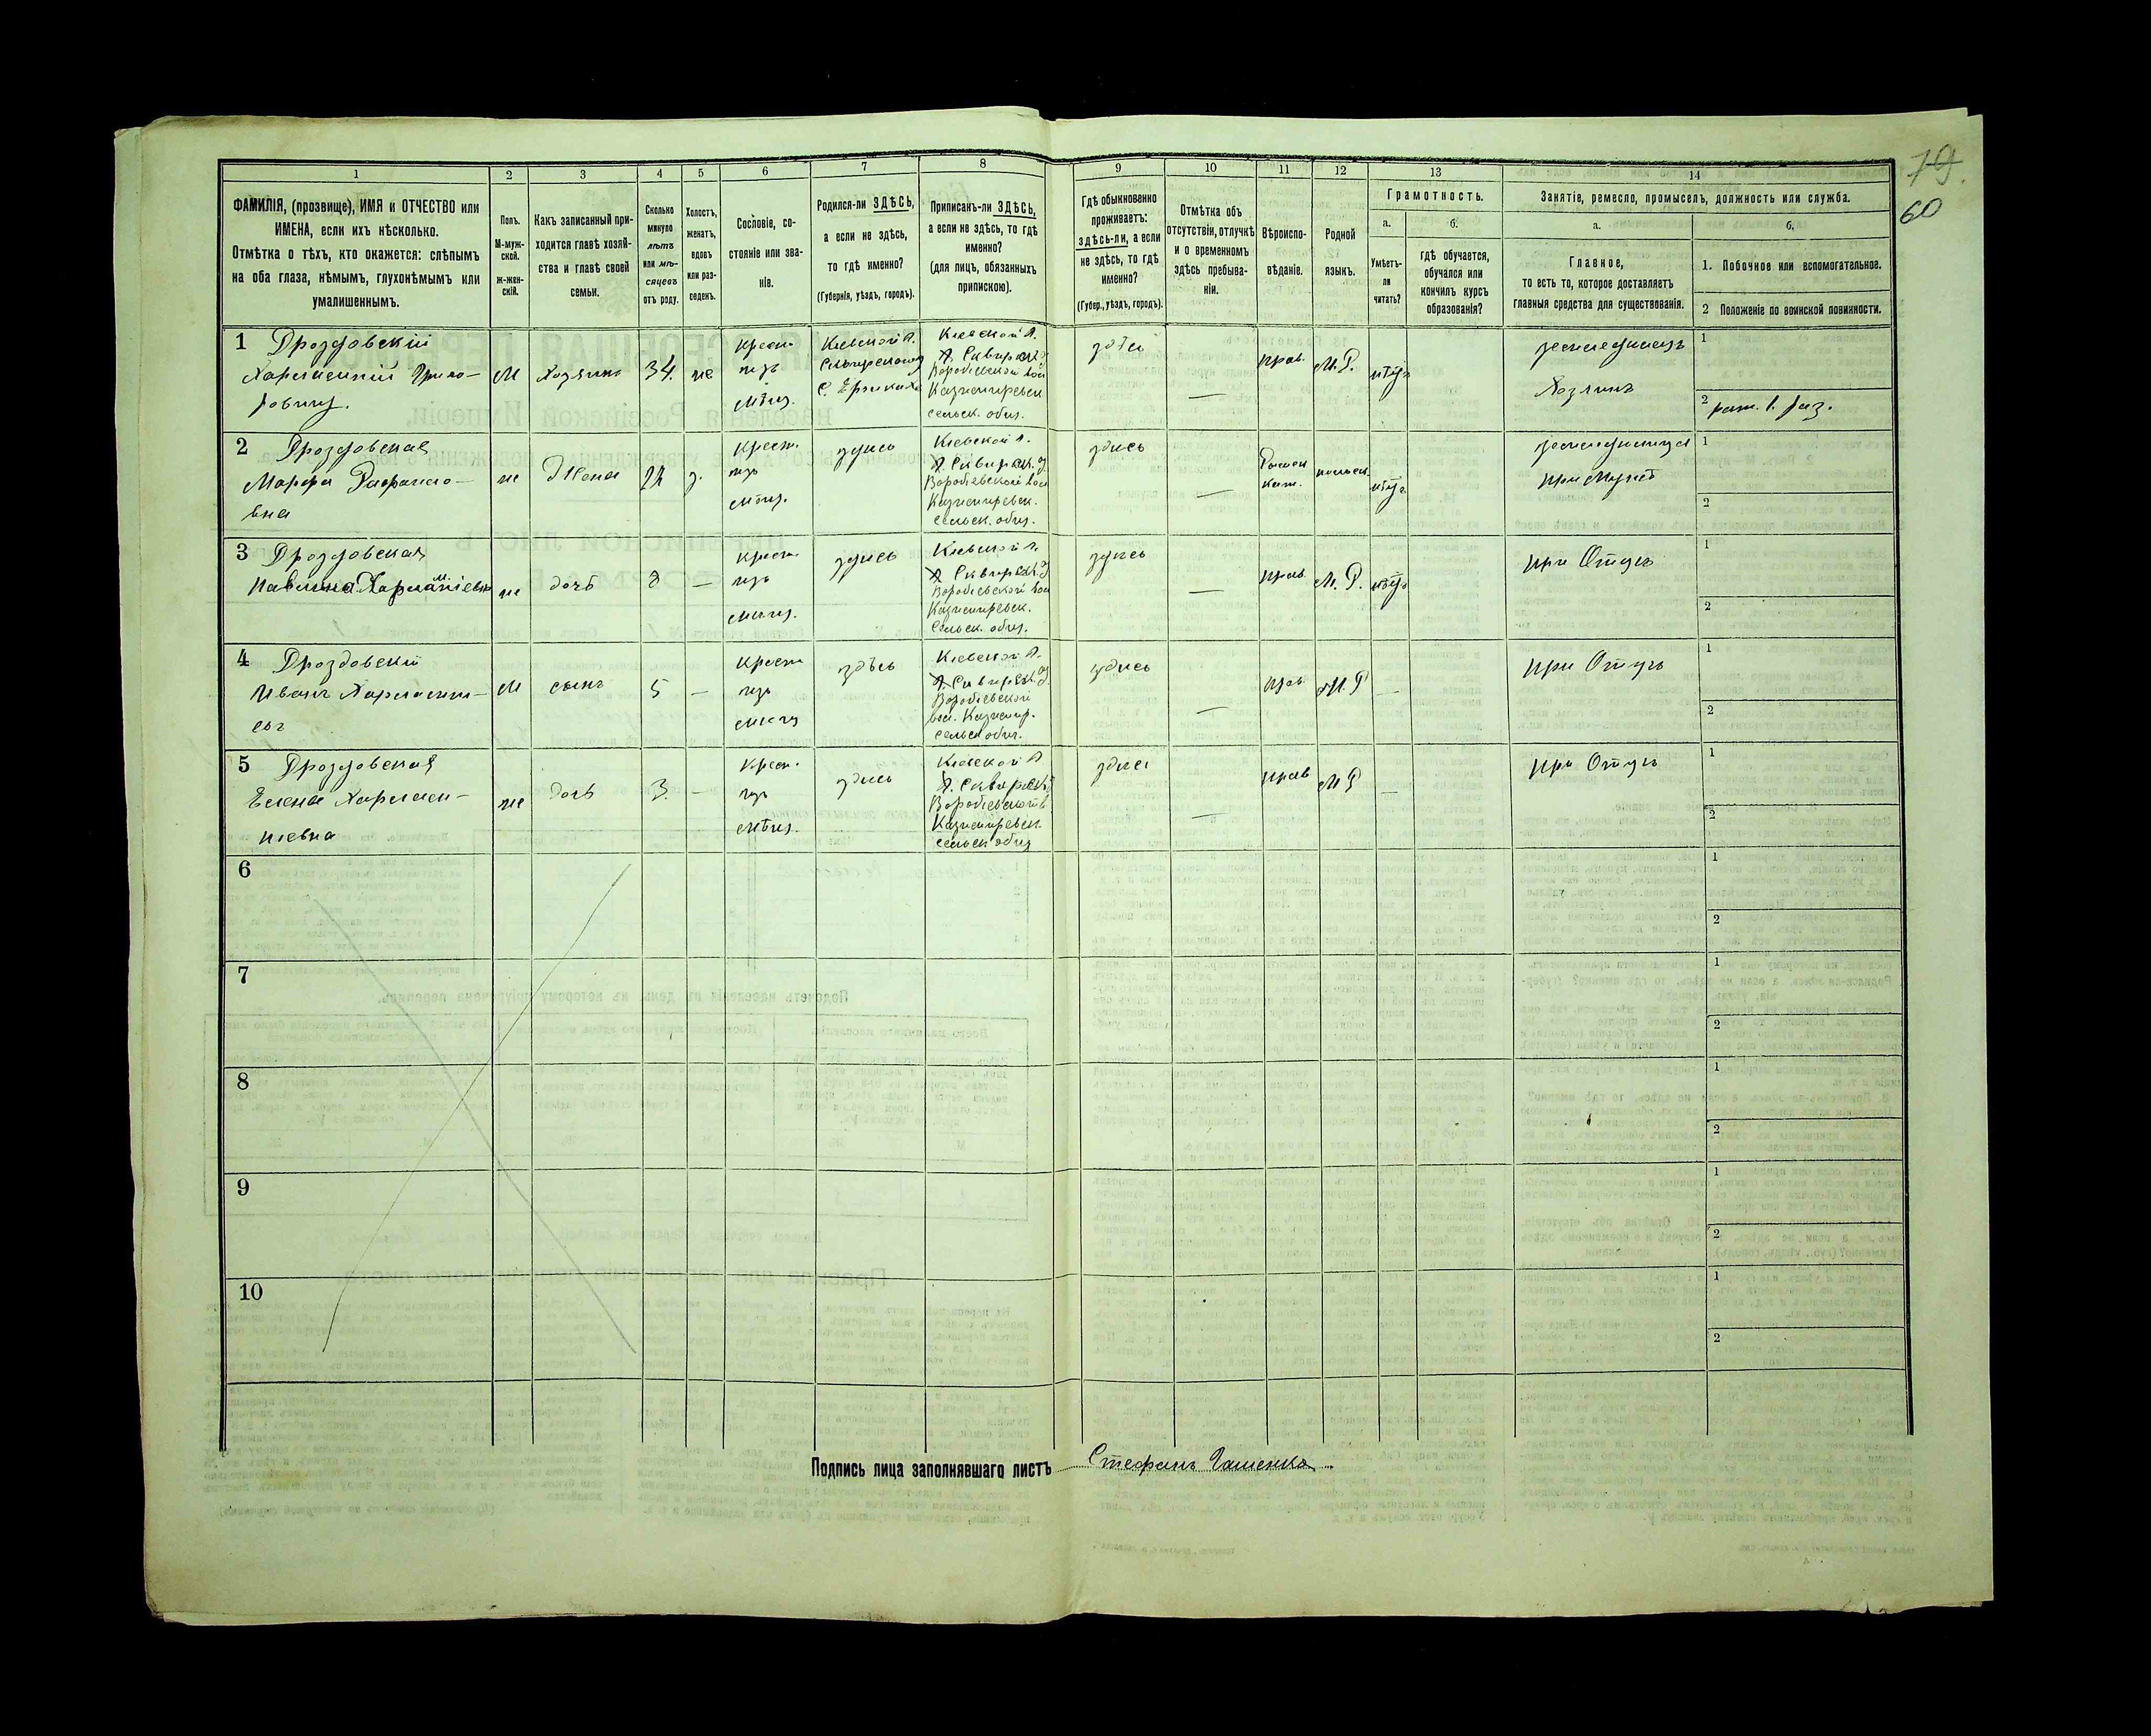 79.
60
1
2
3
4
5
6
7
8
9
10
11
12
13
14
ФАМИЛІЯ, (прозвище), ИМЯ и ОТЧЕСТВО или
ИМЕНА, если ихъ нѣсколько.
Отмѣтка о тѣхъ, кто окажется: слѣпымъ
на оба глаза, нѣмымъ, глухонѣмымъ или
умалишеннымъ.
Полъ.
М-муж-
ской.
ж-жен-
скій.
Какъ записанный при-
ходится главѣ хозяй-
ства и главѣ своей
семьи.
Сколько
минуло
лѣтъ
или мѣ-
сяцевъ
отъ роду.
Холостъ,
женатъ,
вдовъ
или раз-
веденъ.
Сословіе, со-
стояніе или зва-
ніе.
Родился-ли ЗДѢСЬ,
а если не здѣсь,
то гдѣ именно?
(Губернія, уѣздъ, городъ).
Приписанъ-ли ЗДѢСЬ,
а если не здѣсь, то гдѣ
именно?
(для лицъ, обязанныхъ
припискою).
Гдѣ обыкновенно
проживаетъ:
здѣсь-ли, а если
не здѣсь, то гдѣ
именно?
(Губер., уѣздъ, городъ).
Отмѣтка объ
отсутствіи, отлучкѣ
и о временномъ
здѣсь пребыва-
ніи.
Вѣроиспо-
вѣданіе.
Родной
языкъ.
Грамотность.
а.
Умѣетъ-
ли
читать?
б.
гдѣ обучается,
обучался или
кончилъ курсъ
образованія?
Занятіе, ремесло, промыселъ, должность или служба.
а.
Главное,
то есть то, которое доставляетъ
главныя средства для существованія.
б.
1. Побочное или вспомогательное.
2 Положеніе по воинской повинности.
1 Дроздовскій
Харлампій Григо-
ровичъ.
м
Хозяинъ
34.
же
Крест.
изъ
мѣщ.
Кіевской г.
Сквирского у
с. Ерчикахъ
Кіевской г.
Сквирск. у
Воробіевской вол
Казимиревск
сельск. общ.
здѣсь
—
прав.
М. Р.
нѣтъ
земледѣлецъ
Хозяинъ
1
2 рат. 1. раз.
2 Дроздовская
Марфа
вна
же
Жена
Крест.
изъ
мѣщ.
здѣсь
Кіевской г.
Сквирск. у
Воробіевской вол
Казимиревск.
сельск. общ.
здѣсь
—
Римск
кат.
польск.
нѣтъ
земледѣлица
при Мужѣ
1
2
3 Дроздовская
Павлина Харлампіевна
же
дочь
8
—
Крест.
изъ
мѣщ.
здѣсь
Кіевской г.
Сквирск. у
Воробіевской вол
Казимиревск.
Сельск. общ.
здѣсь
—
прав.
М. Р.
нѣтъ
при Отцѣ
1
2
4 Дроздовскій
Иванъ Харлампі-
евъ
м
сынъ
5
—
Крест
изъ
мѣщ
здѣсь
Кіевской г.
Сквирск. у
Воробіевской
вол. Казимир.
сельск общ.
здѣсь
—
прав
М. Р
—
при Отцѣ
1
2
5 Дроздовская
Елена Харлам-
піевна
же
дочь
3.
—
Крест.
изъ
мѣщ.
здѣсь
Кіевской г
Сквирск.
Воробіевской в
Казимиревск.
сельск общ
здѣсь
—
прав
М Р
—
при Отцѣ
1
2
6
1
2
7
1
2
8
1
2
9
1
2
10
1
2
Подпись лица заполнявшаго листъ Стефанъ